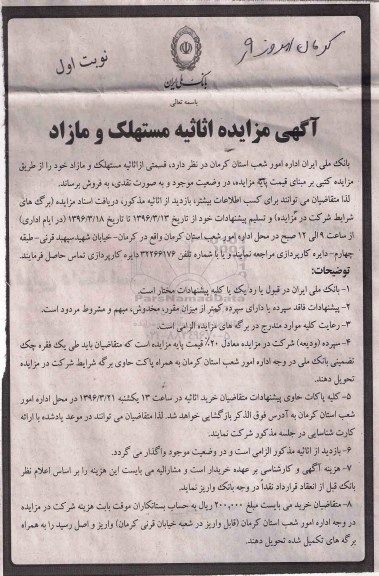 کرمان امروز ۹
نوبت اول
بانک ملی ایران
باسمه تعالی
آگهی مزایده اثاثیه مستهلک و مازاد
بانک ملی ایران اداره امور شعب استان کرمان در نظر دارد، قسمتی ازاثاثیه مستهلک و مازاد خود را از طریق
مزایده کتبی بر مبنای قیمت پایه مزایده، در وضعیت موجود و به صورت نقدی، به فروش برساند.
لذا متقاضیان می توانند برای کسب اطلاعات بیشتر، بازدید از اثاثیه مذکور، دریافت اسناد مزایده (برگ های
شرایط شرکت در مزایده) و تسلیم پیشنهادات خود از تاریخ ۱۳۹۶/۳/۱۳ تا تاریخ ۱۳۹۶/۳/۱۸ (در ایام اداری)
از ساعت ۹ الی ۱۲ صبح در محل اداره امور شعب استان کرمان واقع در کرمان- خیابان شهید سپهبد قرنی- طبقه
چهارم- دایره کارپردازی مراجعه نمایند و یا با شماره تلفن ۳۲۲۶۶۱۷۶ دایره کارپردازی تماس حاصل فرمایند.
توضیحات:
۱- بانک ملی ایران در قبول یا رد یک یا کلیه پیشنهادات مختار است.
۲- پیشنهادات فاقد سپرده یا دارای سپرده کمتر از میزان مقرر، مخدوش، مبهم و مشروط مردود است.
۳- رعایت کلیه موارد مندرج در برگه های مزایده الزامی است.
۴- سپرده (ودیعه) شرکت در مزایده معادل ۲۰٪ قیمت پایه مزایده است که متقاضیان باید طی یک فقره چک
تضمینی بانک ملی در وجه اداره امور شعب استان کرمان به همراه پاکت حاوی برگه شرایط شرکت در مزایده
تحویل دهند.
۵- کلیه پاکات حاوی پیشنهادات متقاضیان خرید اثاثیه در ساعت ۱۳ یکشنبه ۱۳۹۶/۳/۲۱ در محل اداره امور
شعب استان کرمان به آدرس فوق الذکر بازگشایی خواهد شد. لذا متقاضیان می توانند در موعد یادشده با ارائه
کارت شناسایی در جلسه مذکور شرکت نمایند.
۶- بازدید از اثاثیه مذکور الزامی است و در وضعیت موجود واگذار می گردد.
۷- هزینه آگهی و کارشناسی بر عهده خریدار است و مشارالیه می بایست این هزینه را بر اساس اعلام نظر
بانک قبل از انعقاد قرارداد نقداً در وجه بانک واریز نماید.
۸- متقاضیان خرید می بایست مبلغ ۲۰۰,۰۰۰ ریال به حساب بستانکاران موقت بابت هزینه شرکت در مزایده
در وجه اداره امور شعب استان کرمان (قابل واریز در شعبه خیابان قرنی کرمان) واریز و اصل رسید را به همراه
برگه های تکمیل شده تحویل دهند.
ParsNamadData